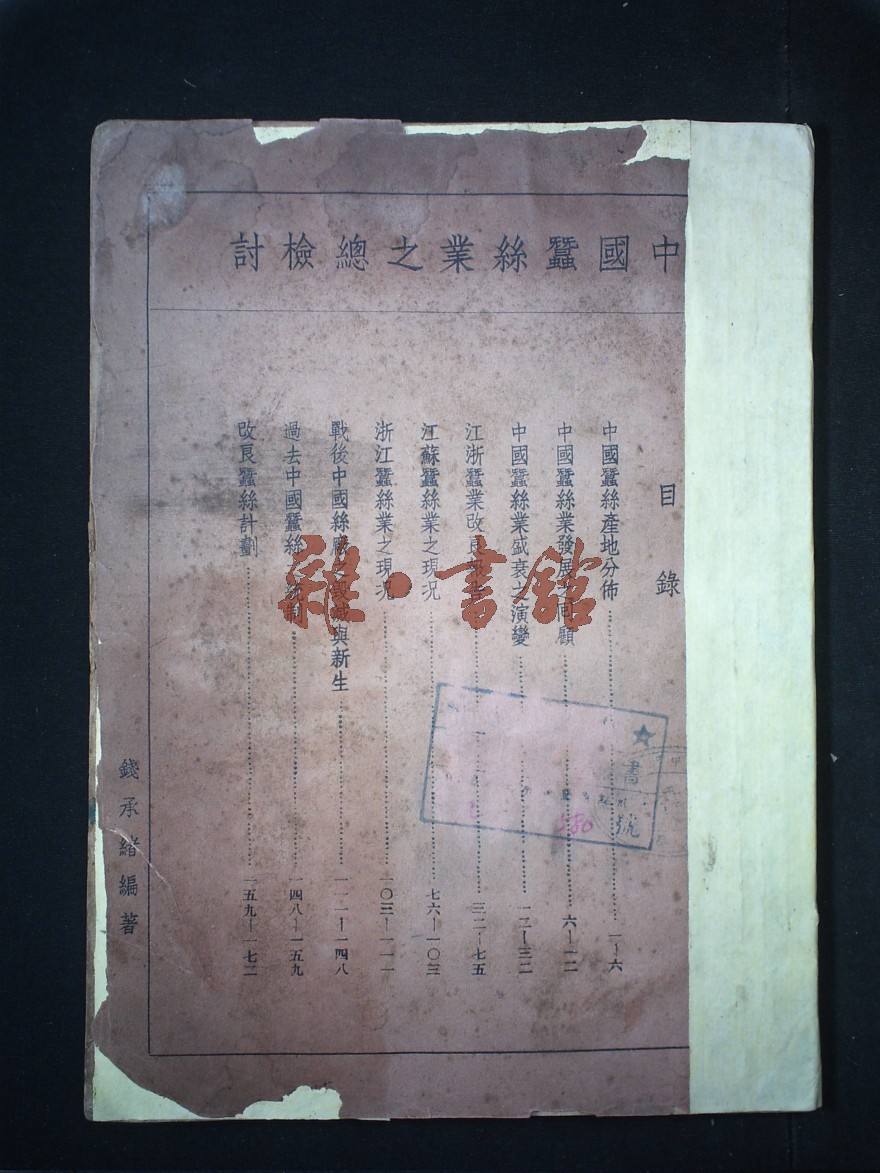 中國蠶絲業之總檢討
目錄
中國蠶絲產地分佈……一—六
中國蠶絲業發展之回顧……六—一二
中國蠶絲業盛衰之演變……一二—三二
江浙蠶業改良……三二—七五
江蘇蠶絲業之現况……七六—一〇三
浙江蠶絲業之現况……一〇三—一一一
戰後中國絲廠之與新生……一一一—一四八
過去中國蠶絲統制……一四八—一五九
改良蠶絲計劃……一五九—一七二
錢承緒編著
雜·書館
書
580號